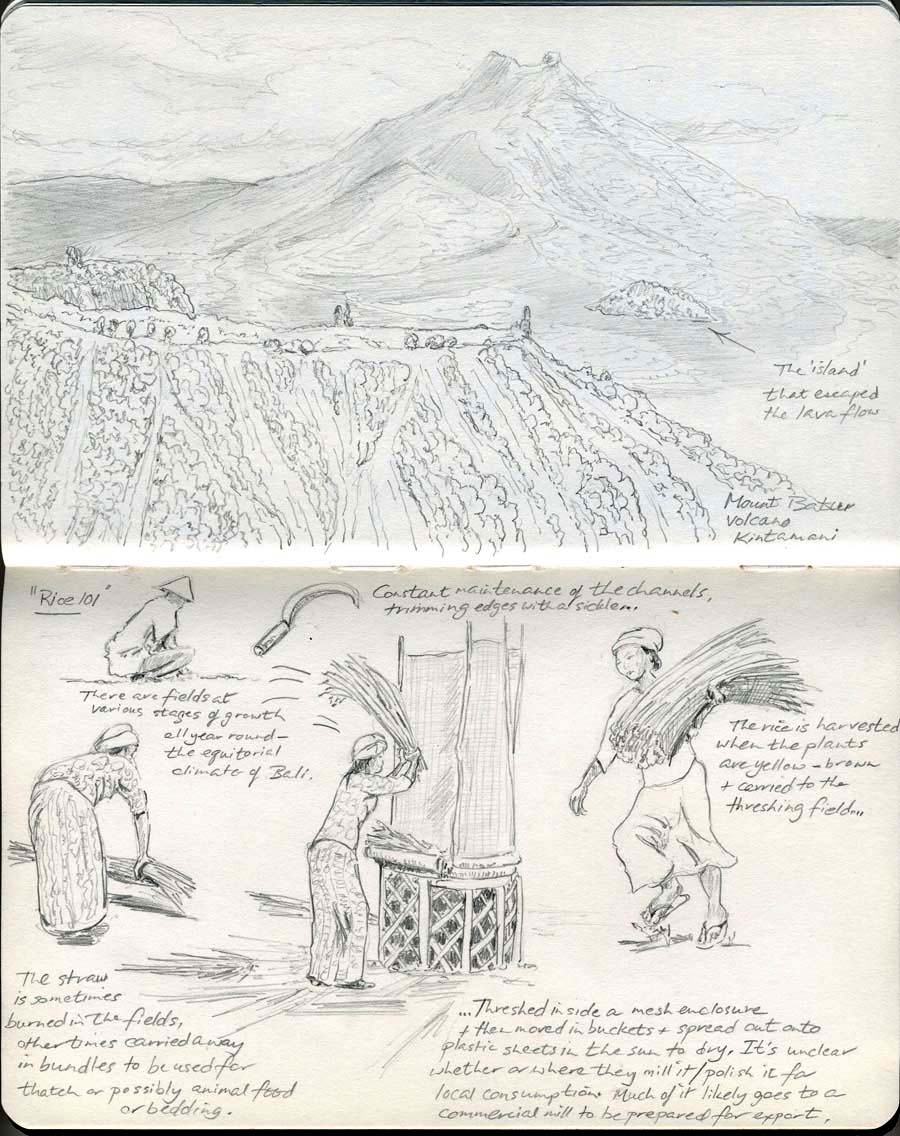 The 'island'
that escaped
the lava flow
Mount Batur
Volcano
Kintamani
"Rice 101"
Constant maintenance of the channels,
trimming edges with a sickle...
There are fields at
various stages of growth
all year round –
the equitorial
climate of Bali.
The rice is harvested
when the plants
are yellow-brown
+ carried to the
threshing field...
The straw
is sometimes
burned in the fields,
other times carried away
in bundles to be used for
thatch or possibly animal food
or bedding.
...Threshed inside a mesh enclosure
+ then moved in buckets + spread out onto
plastic sheets in the sun to dry. It's unclear
whether or where they mill it/polish it for
local consumption. Much of it likely goes to a
commercial mill to be prepared for export.